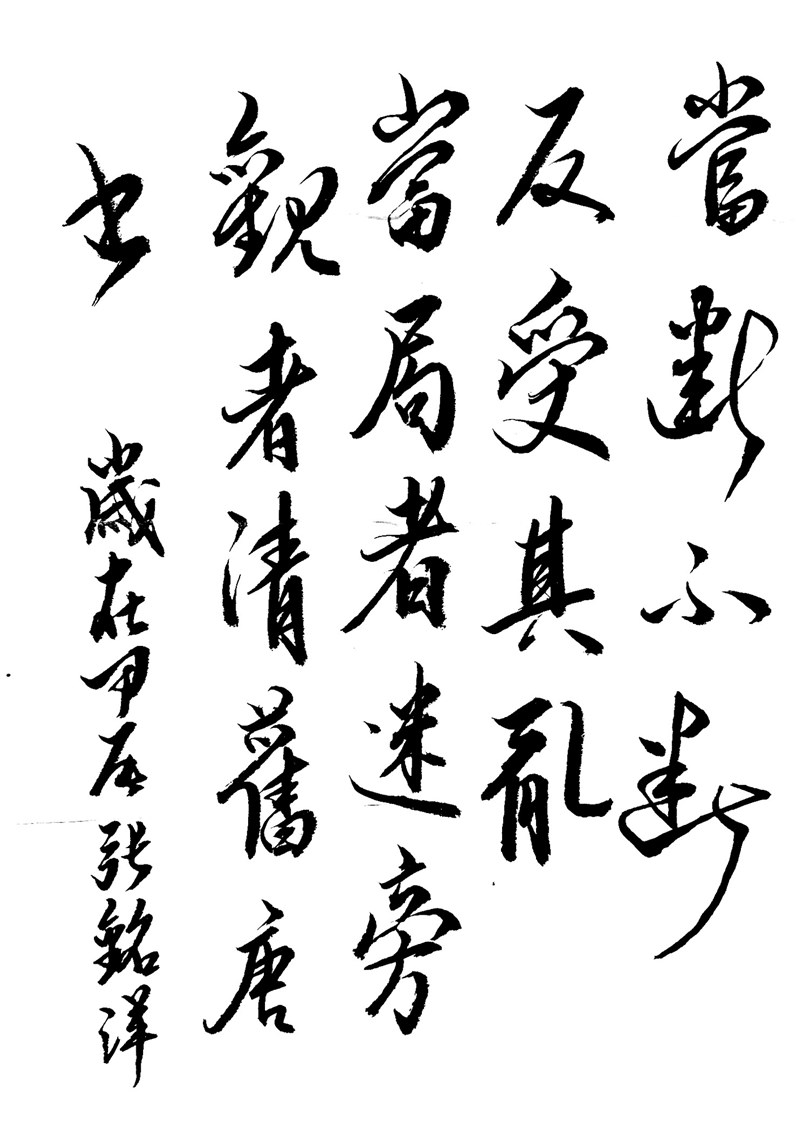 當斷不斷
反受其亂
當局者迷旁
觀者清舊唐
书
歲在甲辰張銘洋